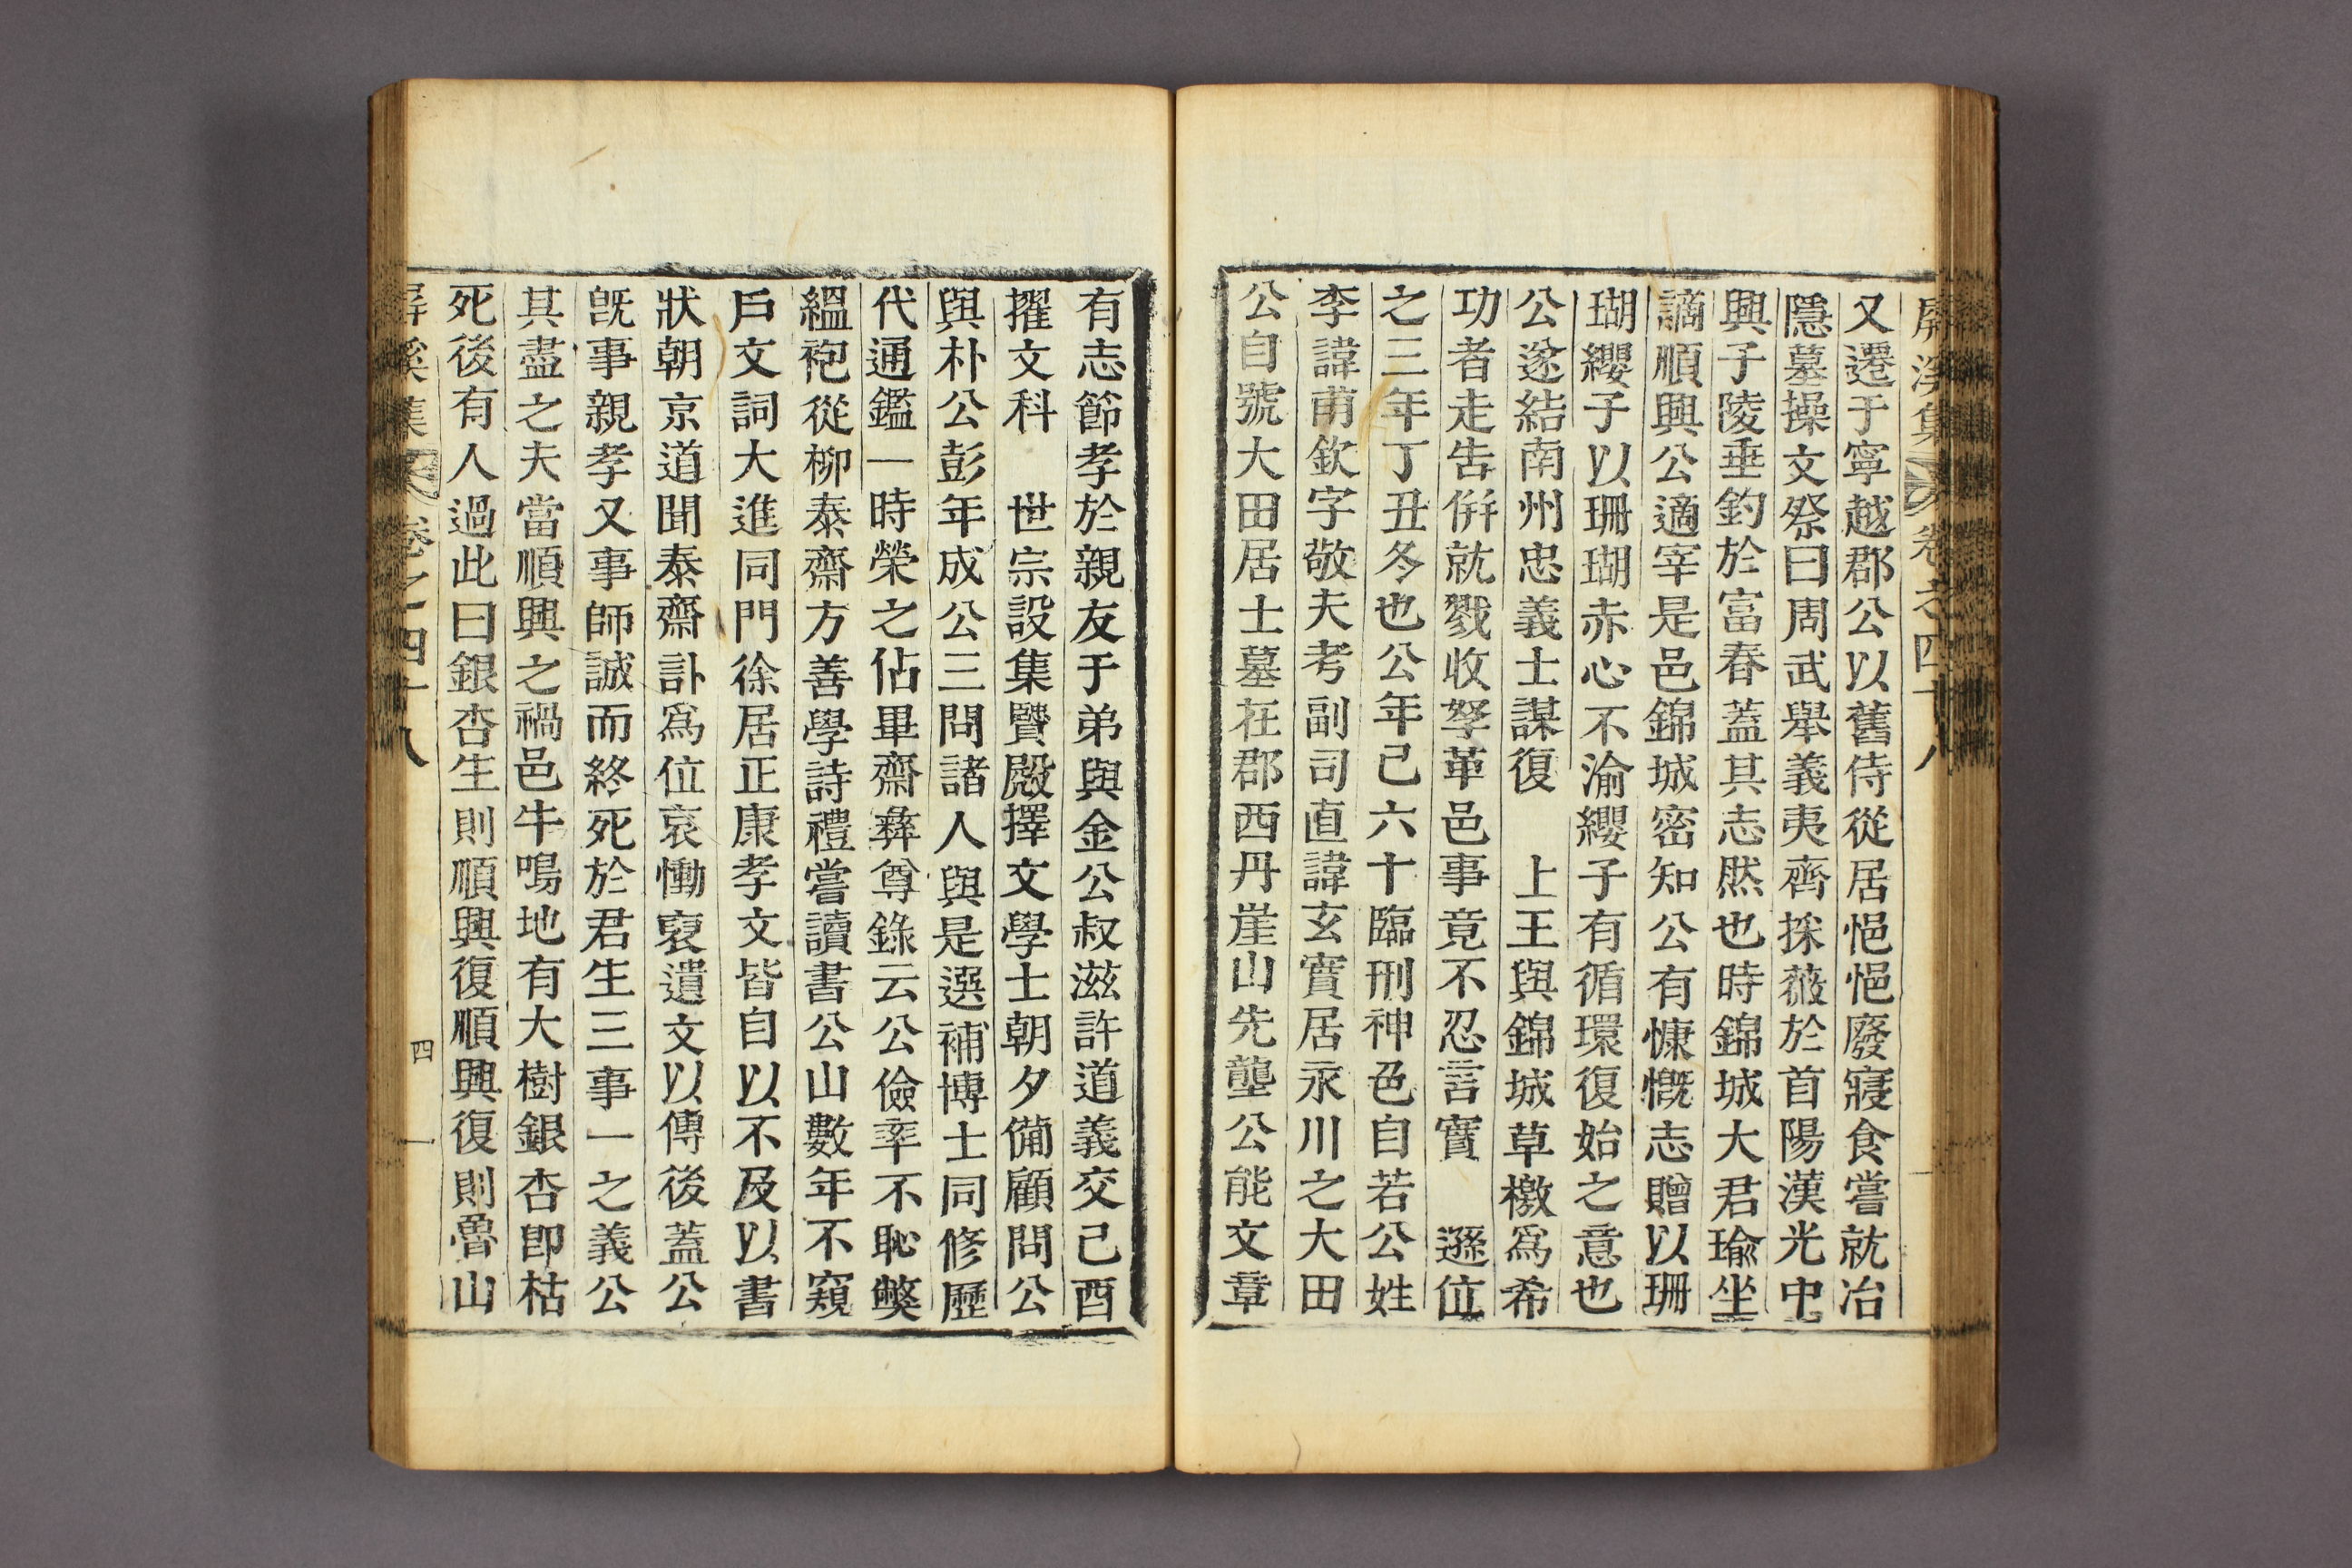 屛溪集 卷之四十八
又遷于寧越郡公以舊侍從居悒悒廢寢食嘗就冶
隱墓操文祭曰周武舉義夷齊採薇於首陽漢光中
興子陵垂釣於富春蓋其志然也時錦城大君瑜坐
謫順興公適宰是邑錦城密知公有慷慨志贈以珊
瑚纓子以珊瑚赤心不渝纓子有循環復始之意也
公遂結南州忠義士謀復 上王與錦城草檄爲希
功者走告倂就戮收孥革邑事竟不忍言實 遜位
之三年丁丑冬也公年己六十臨刑神色自若公姓
李諱甫欽字敬夫考副司直諱玄實居永川之大田
公自號大田居士墓在郡西丹崖山先壟公能文章
有志節孝於親友于弟與金公叔滋許道義交己酉
擢文科 世宗設集賢殿擇文學士朝夕備顧問公
與朴公彭年成公三問諸人與是選補博士同修歷
代通鑑一時榮之佔畢齋彝尊錄云公儉率不恥弊
縕袍從柳泰齋方善學詩禮嘗讀書公山數年不窺
戶文詞大進同門徐居正康孝文皆自以不及以書
狀朝京道聞泰齋訃爲位哀慟裒遺文以傳後蓋公
旣事親孝又事師誠而終死於君生三事一之義公
其盡之夫當順興之禍邑牛鳴地有大樹銀杏卽枯
死後有人過此曰銀杏生則順興復順興復則魯山
屛溪集 卷之四十八 四